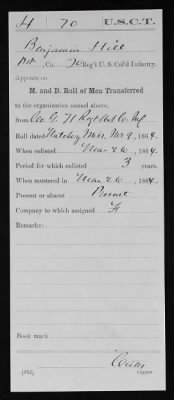 H 70 U.S.C.T.
Benjamin Hill
Pvt, Co. 70 Reg't U. S. Col'd Infantry.
Appears on
M. and D. Roll of Men Transferred
to the organization named above,
from Co. G. 71 Regt U.S. Co. Inf
Roll dated Natchez, Miss, Nov 9, 1864.
When enlisted Mar 26, 1864.
Period for which enlisted 3 years.
When mustered in Mar 26, 1864.
Present or absent Present
Company to which assigned F
Remarks:
Book mark:
Copyist.